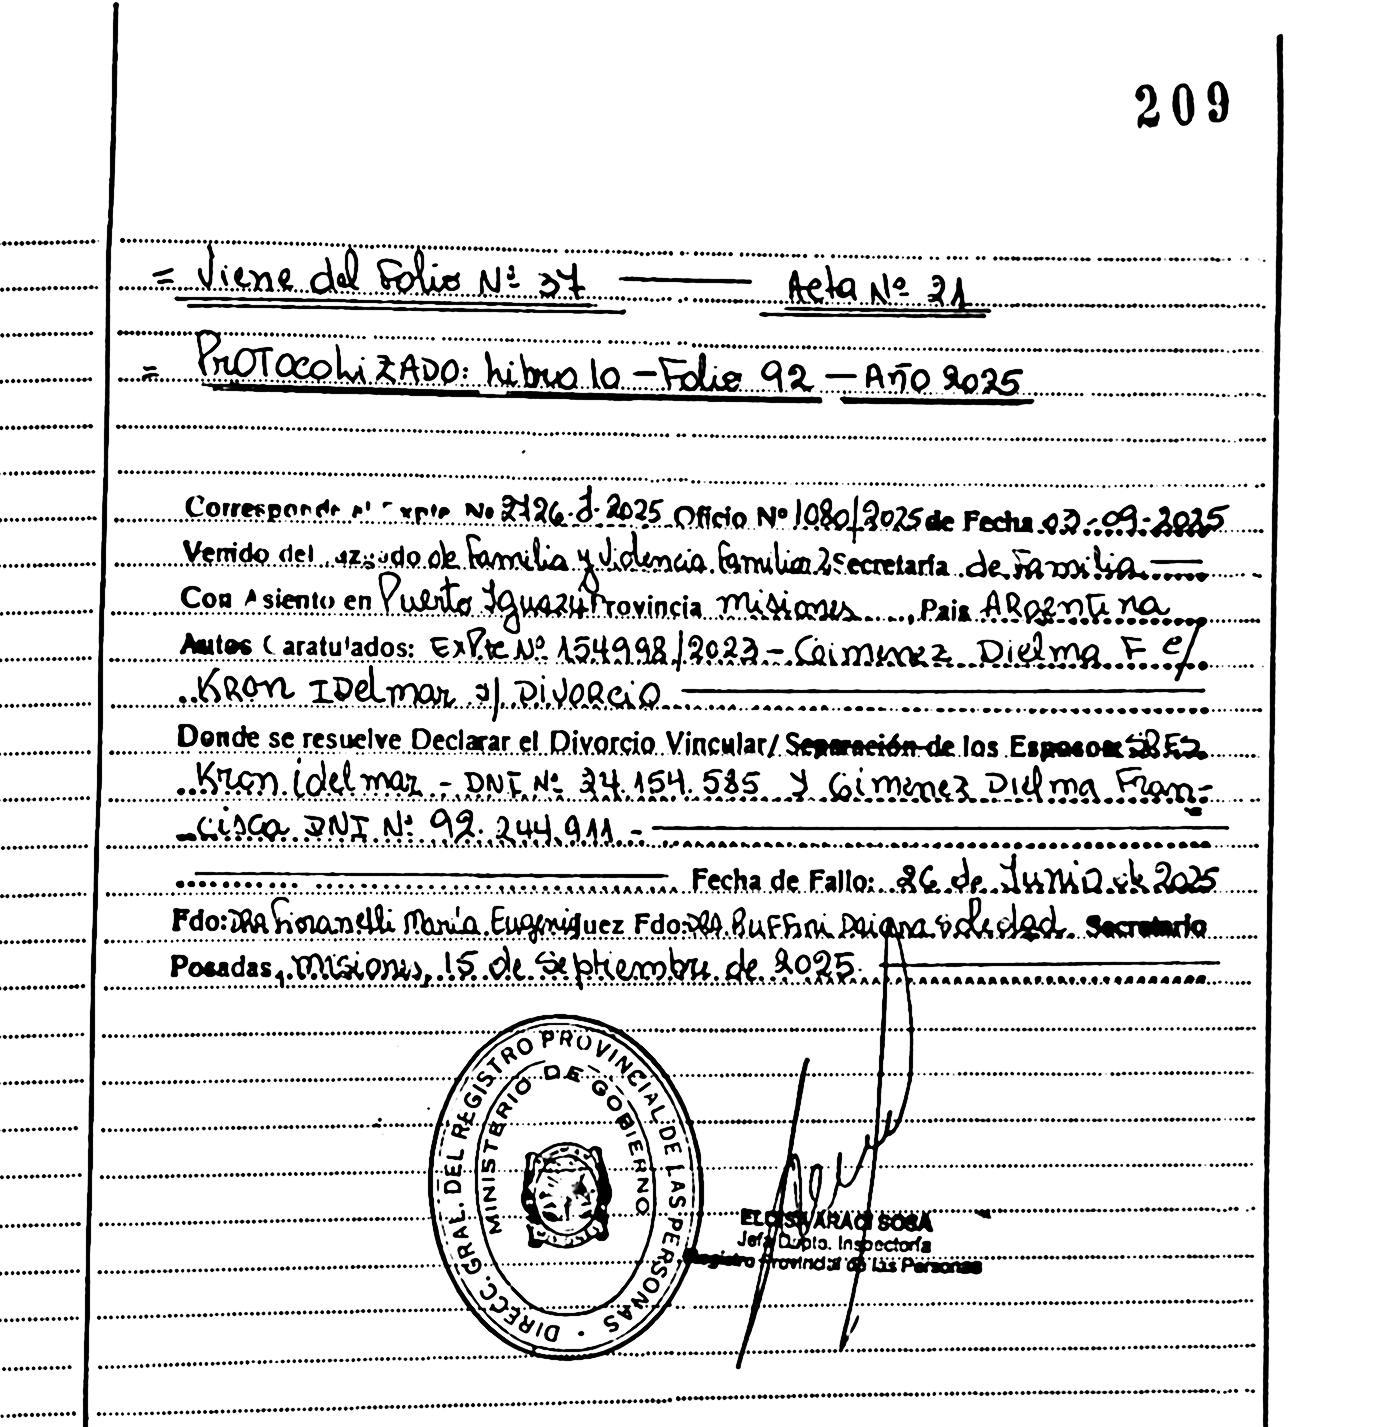 209
= Viene del Folio Nº 37 — Acta Nº 21
= PROTOCOLIZADO: Libro 10 - Folio 92 - AÑO 2025
Corresponde al Expte Nº 2726-J-2025 Oficio Nº 1080/2025 de Fecha 03-09-2025
Venido del Juzgado de Familia y Violencia Familiar 2 Secretaría de Familia
Con Asiento en Puerto Iguazú Provincia Misiones, Pais ARgentina
Autos Caratulados: ExPte Nº 154998/2023 - Gimenez Dielma F c/
KRON IDelmar s/ DIVORCIO
Donde se resuelve Declarar el Divorcio Vincular/ Separación de los Esposos SRES
Kron idelmar - DNI Nº 24.154.585 y Gimenez Dielma Fran-
cisca DNI Nº 92.244.911 -
Fecha de Fallo: 26 de Junio de 2025
Fdo: DRA Fioranelli María Eugenia Juez Fdo: DRA Ruffini Daiana Soledad Secretario
Posadas, Misiones, 15 de Septiembre de 2025.
DIRECC. GRAL. DEL REGISTRO PROVINCIAL DE LAS PERSONAS
MINISTERIO DE GOBIERNO
ELOISA ARACI SOSA
Jefa Dupto. Inspectoría
Registro Provincial de las Personas